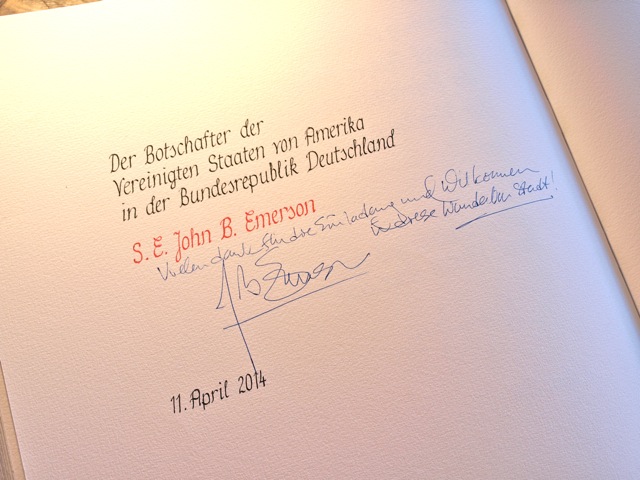 Der Botschafter der
Vereinigten Staaten von Amerika
in der Bundesrepublik Deutschland
S. E. John B. Emerson
Vielen danke für die Einladung und Wilkommen
diese Stadt!
JB Emerson
11. April 2014